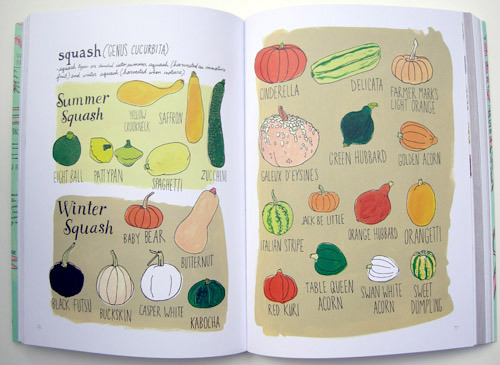 squash (GENUS CUCURBITA)
squash types are divided into summer squash (harvested as immature
fruit) and winter squash (harvested when mature)
Summer
Squash
YELLOW
CROOKNECK
SAFFRON
EIGHT BALL
PATTYPAN
SPAGHETTI
ZUCCHINI
Winter
Squash
BABY BEAR
BUTTERNUT
BLACK FUTSU
BUCKSKIN
CASPER WHITE
KABOCHA
CINDERELLA
DELICATA
FARMER MARK'S
LIGHT ORANGE
GALEUX D'EYSINES
GREEN HUBBARD
GOLDEN ACORN
ITALIAN STRIPE
JACK BE LITTLE
ORANGE HUBBARD
ORANGETTI
RED KURI
TABLE QUEEN
ACORN
SWAN WHITE
ACORN
SWEET
DUMPLING